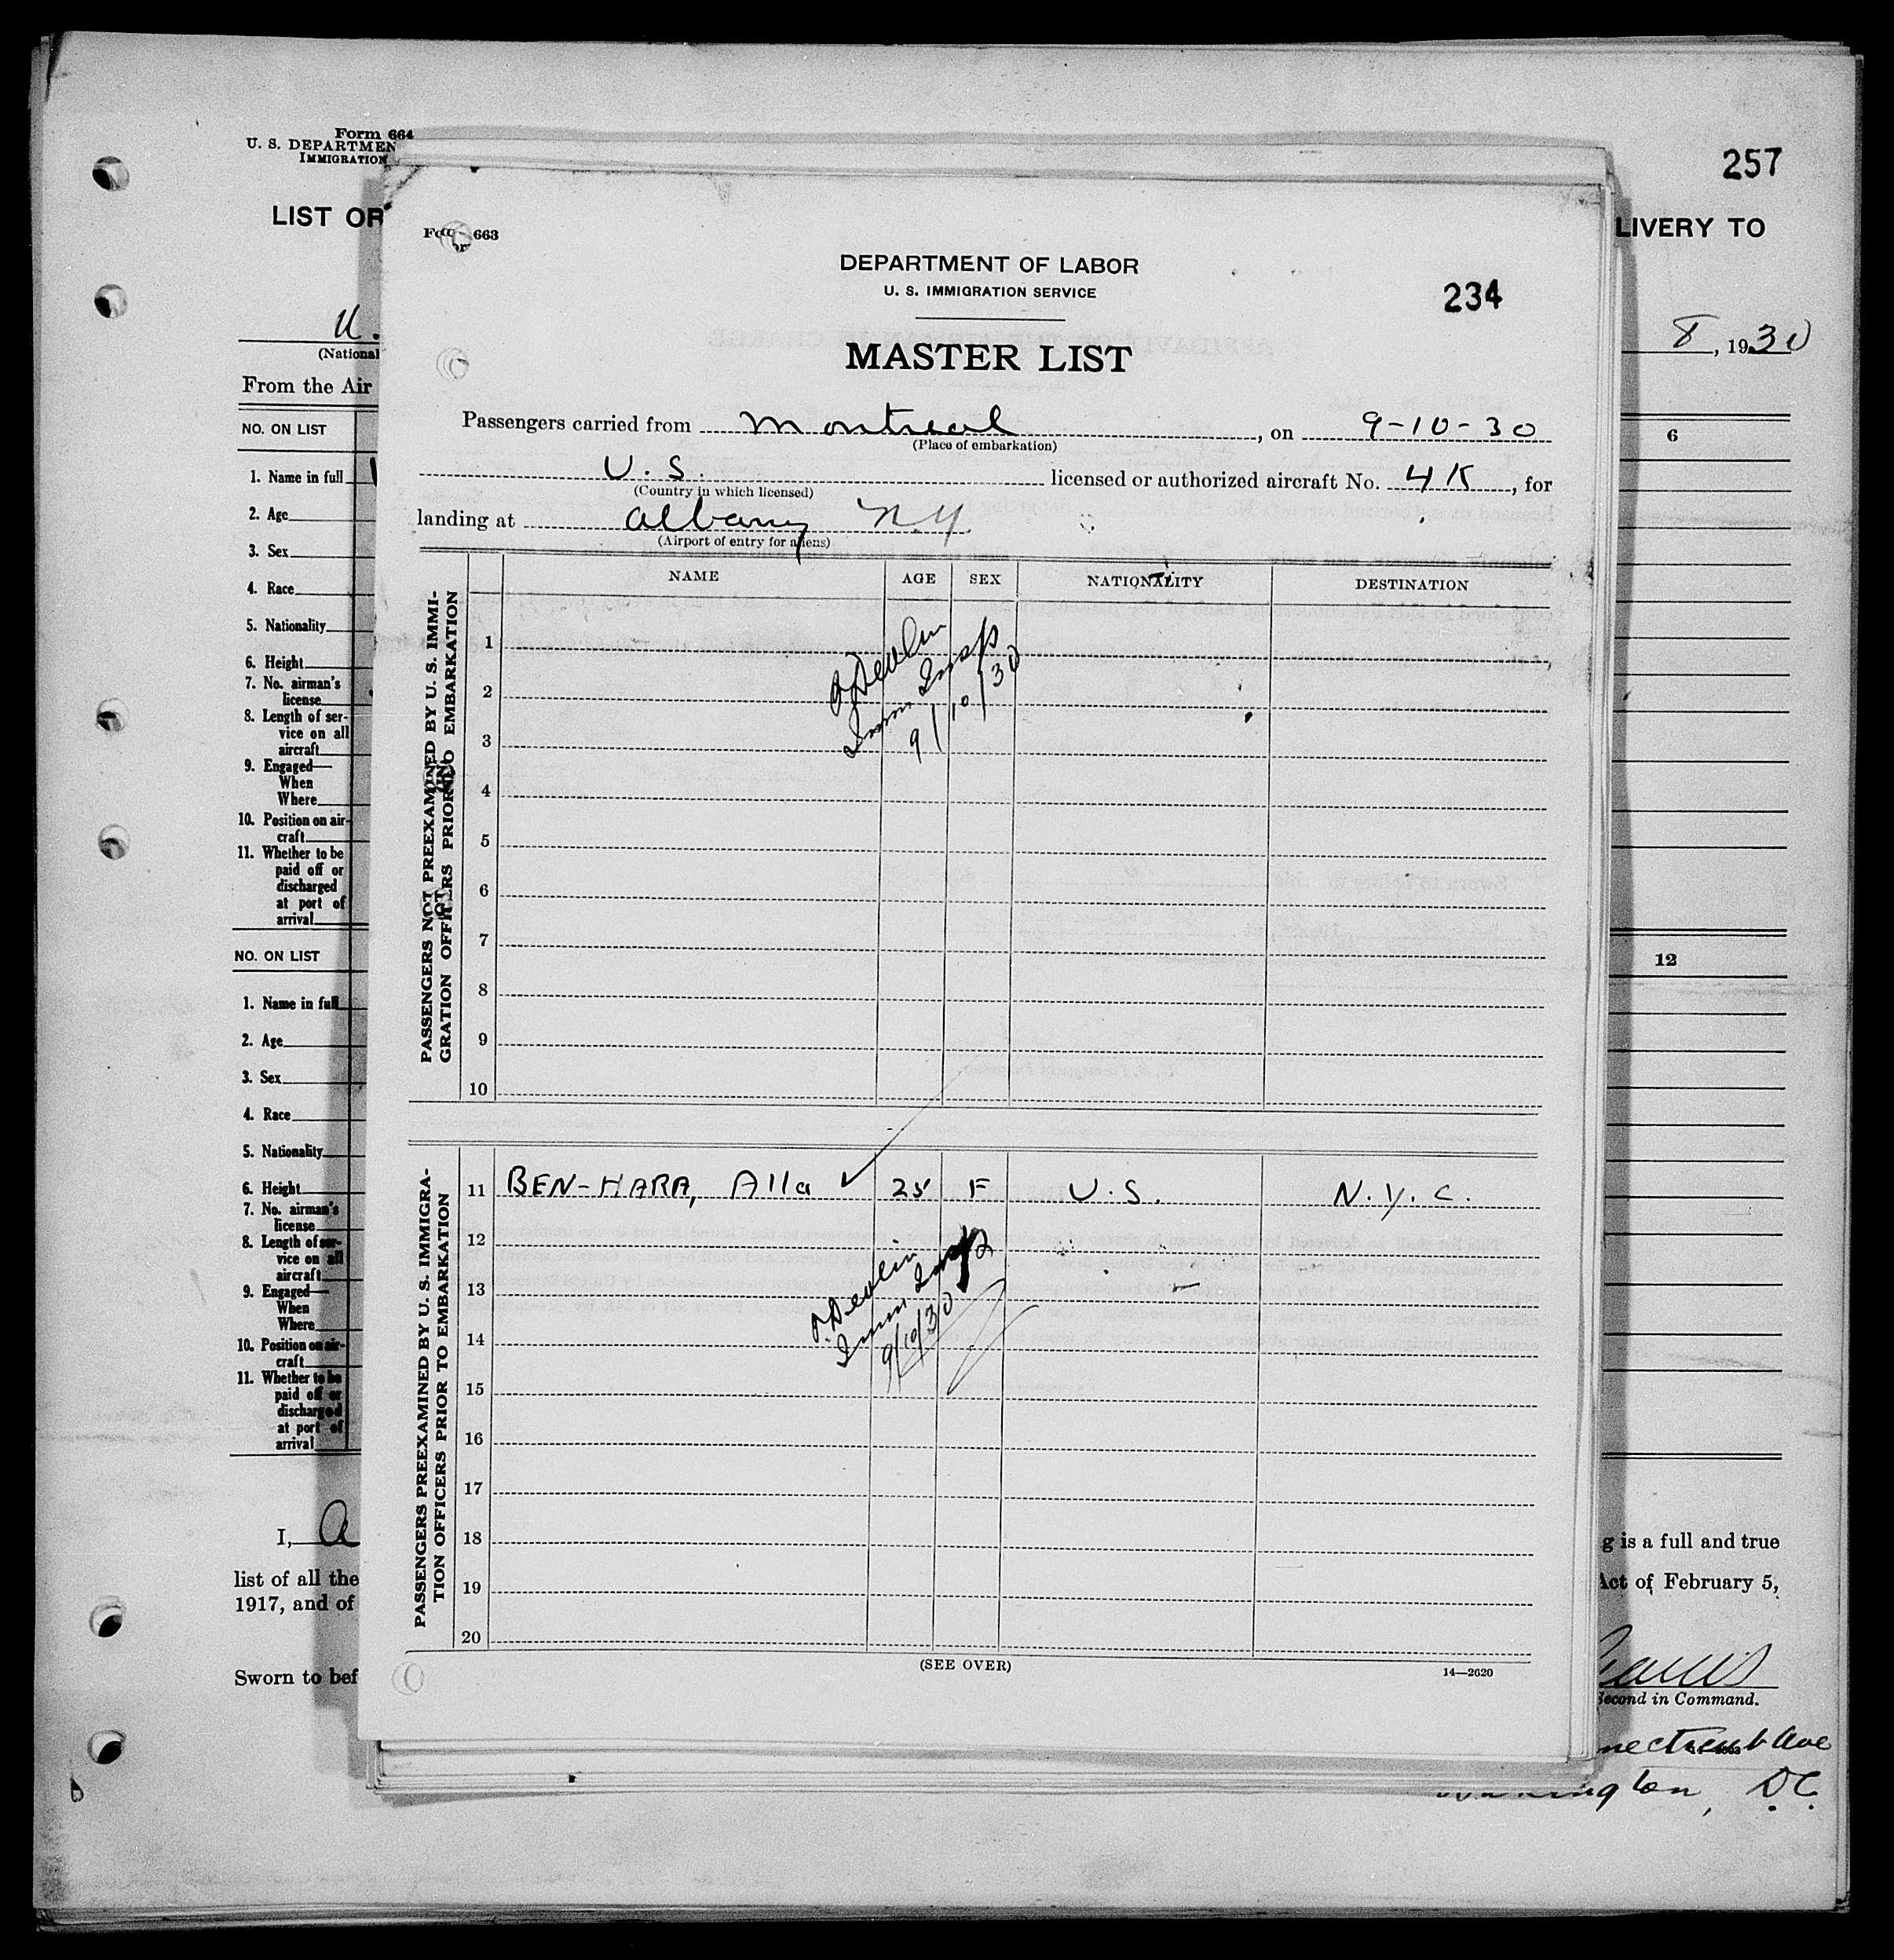 Form 664
U. S. DEPARTMEN
IMMIGRATION
257
LIST OR
LIVERY TO
U.
8, 1930
(National
From the Air
NO. ON LIST
6
1. Name in full
2. Age
3. Sex
4. Race
5. Nationality
6. Height
7. No. airman's
license
8. Length of ser-
vice on all
aircraft
9. Engaged—
When
Where
10. Position on air-
craft
11. Whether to be
paid off or
discharged
at port of
arrival
NO. ON LIST
12
1. Name in full
2. Age
3. Sex
4. Race
5. Nationality
6. Height
7. No. airman's
license
8. Length of ser-
vice on all
aircraft
9. Engaged—
When
Where
10. Position on air-
craft
11. Whether to be
paid off or
discharged
at port of
arrival
I, A
g is a full and true
list of all the
Act of February 5,
1917, and of
Sworn to bef
Second in Command.
Ave
D.C.
663
DEPARTMENT OF LABOR
U. S. IMMIGRATION SERVICE
234
MASTER LIST
Passengers carried from Montreal, on 9-10-30
(Place of embarkation)
U. S. licensed or authorized aircraft No. 4K, for
(Country in which licensed)
landing at Albany N.Y.
(Airport of entry for aliens)
NAME AGE SEX NATIONALITY DESTINATION
PASSENGERS NOT PREEXAMINED BY U. S. IMMI-
GRATION OFFICERS PRIOR TO EMBARKATION
1
2
3
4
5
6
7
8
9
10
Devlin
Imm Insp
9/10/30
PASSENGERS PREEXAMINED BY U. S. IMMIGRA-
TION OFFICERS PRIOR TO EMBARKATION
11 BEN-HARA, Alla ✓ 25 F U.S. N.Y.C.
12
13
14
15
16
17
18
19
20
Devlin
Imm Insp
9/10/30
(SEE OVER)
14—2620